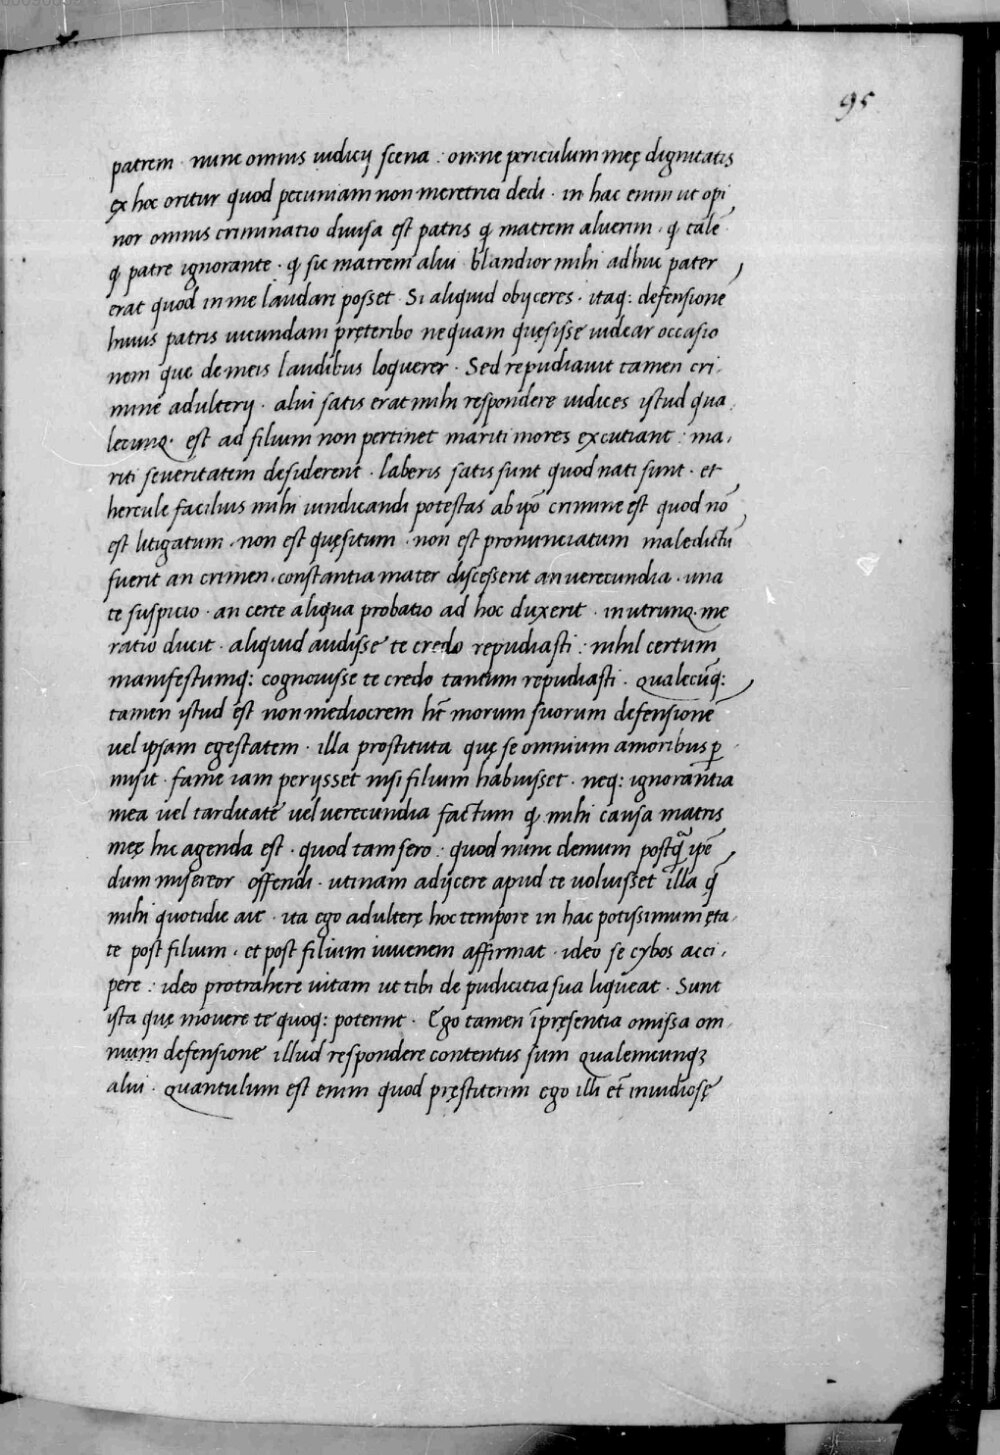 95
patrem · nunc omnis iudicij scena : omne periculum meę dignitatis
ex hoc oritur quod pecuniam non meretrici dedi · in hac enim ut opi
nor omnis criminatio diuisa est patris ꝙ matrem aluerim · ꝙ talē
ꝙ patre ignorante · ꝙ sic matrem alui blandior mihi adhuc pater
erat quod in me laudari posset · Si aliquid obijceres · itaq: defensionē
huius patris iucundam pręteribo nequam quęsissę uidear occasio
nem que de meis laudibus loquerer · Sed repudiauit tamen cri
minē adulterij · alui satis erat mihi respondere iudices istud qua
lecunq· est ad filium non pertinet mariti mores excutiant : ma
riti seueritatem desiderent · laberis satis sunt quod nati sunt · et
hercule facilius mihi uindicandi potestas ab ipō crimine est quod nō
est litigatum · non est quęsitum · non est pronunciatum maledictū
fuerit an crimen · constantia mater discesserit an uerecundia · una
te suspicio · an certe aliqua probatio ad hoc duxerit · in utrunq· me
ratio ducit · aliquid audisse te credo repudiasti : nihil certum
manifestumq: cognouisse te credo tantum repudiasti · qualecūq:
tamen istud est non mediocrem hēt morum suorum defensionē
uel ipsam egestatem · illa prostituta quę se omnium amoribus ꝑ
misit · fame iam perijsset nisi filium habuisset · neq: ignorantia
mea uel tarditatē uel uerecundia factum ꝙ mihi causa matris
meę hic agenda est · quod tam sero : quod nunc demum postꝙ̄ ipē
dum misereor offendi · utinam adijcere apud te uoluisset illa ꝙ̄
mihi quotidie ait · ita ego adulterę hoc tempore in hac potissimum ęta
te post filium · et post filium iuuenem affirmat · ideo se cybos acci
pere : ideo protrahere uitam ut tibi de pudicitia sua liqueat · Sunt
ista quę mouere te quoq: poterint · Ego tamen īpręsentia omissa om
nium defensionē illud respondere contentus sum qualemcunqꝫ
alui · quantulum est enim quod pręstiterim ego illi et inuidiosę